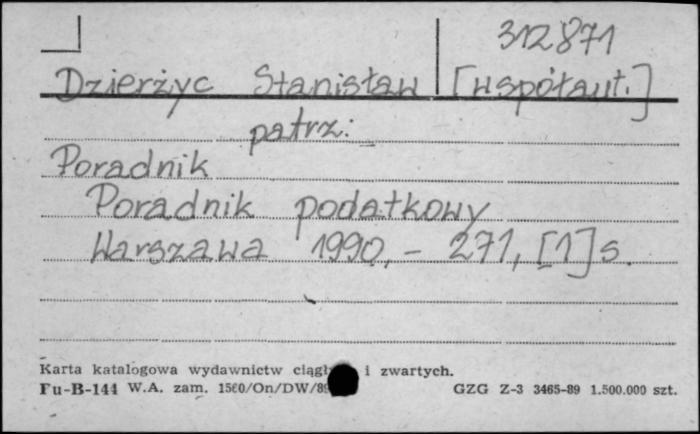 312871
Dzierżyc Stanisław [współaut.]
patrz:
Poradnik
Poradnik podatkowy
Warszawa 1990, - 271, [1] s.
Karta katalogowa wydawnictw i zwartych.
Fu-B-144 W.A. zam. 1560/On/DW/89 GZG Z-3 3465-89 1.500.000 szt.